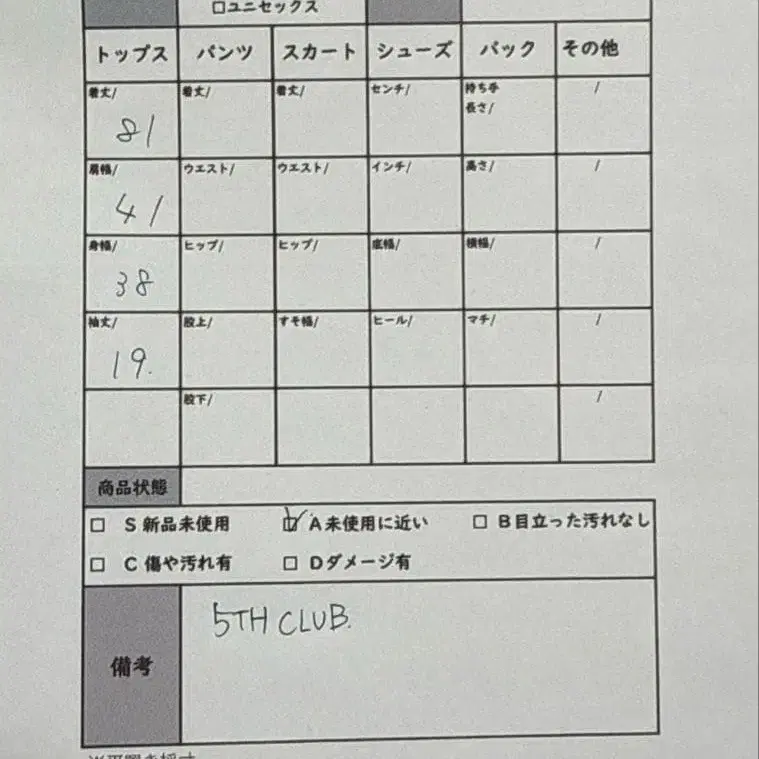 □ユニセックス
トップス パンツ スカート シューズ バック その他
着丈/ 着丈/ 着丈/ センチ/ 持ち手 /
長さ/
81
肩幅/ ウエスト/ ウエスト/ インチ/ 高さ/ /
41
身幅/ ヒップ/ ヒップ/ 底幅/ 横幅/ /
38
袖丈/ 股上/ すそ幅/ ヒール/ マチ/ /
19.
股下/ /
商品状態
□ S 新品未使用 ☑ A 未使用に近い □ B 目立った汚れなし
□ C 傷や汚れ有 □ D ダメージ有
備考 5TH CLUB.